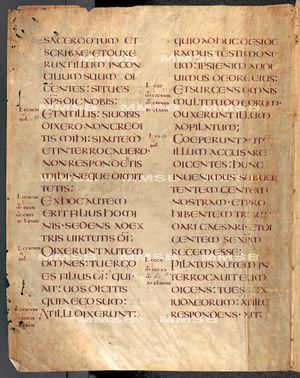 SACERDOTUM ET
SCRIBAE·ETDUXE
RUNTILLUM INCON
CILIUM SUUM DI
CENTES: SITUES
XPS DICNOBIS:
ETAITILLIS: SIUOBIS
DIXERO NONCREDI
TIS MIHI: SIAUTEM
ETINTERROGAUERO·
NON RESPONDETIS
MIHI·NEQUE DIMIT
TETIS:
EXHOCAUTEM
ERIT FILIUS HOMI
NIS·SEDENS ADEX
TRIS UIRTUTIS DI:
DIXERUNT AUTEM
OMNES: TUERGO
ES FILIUS DI: QUI·
AIT: UOS DICITIS
QUIA EGO SUM:
ATILLI DIXERUNT:
QUID ADHUC DESIDE
RAMUS TESTIMONI
UM: IPSI ENIM AUDI
UIMUS DE ORE EIUS:
ET SURGENS OMNIS
MULTITUDO EORUM·
DUXERUNT ILLUM
ADPILATUM;
COEPERUNT
ILLUM ACCUSARE
DICENTES: HUNC
INUENIMUS SUBUER
TENTEM GENTEM
NOSTRAM·ETPRO
HIBENTEM
DARI CAESARI·
CENTEM SE XPM
REGEM ESSE:
PILATUS AUTEM IN
TERROGAUIT EUM
DICENS: TUES REX
IUDAEORUM: ATILLE
RESPONDENS·AIT: